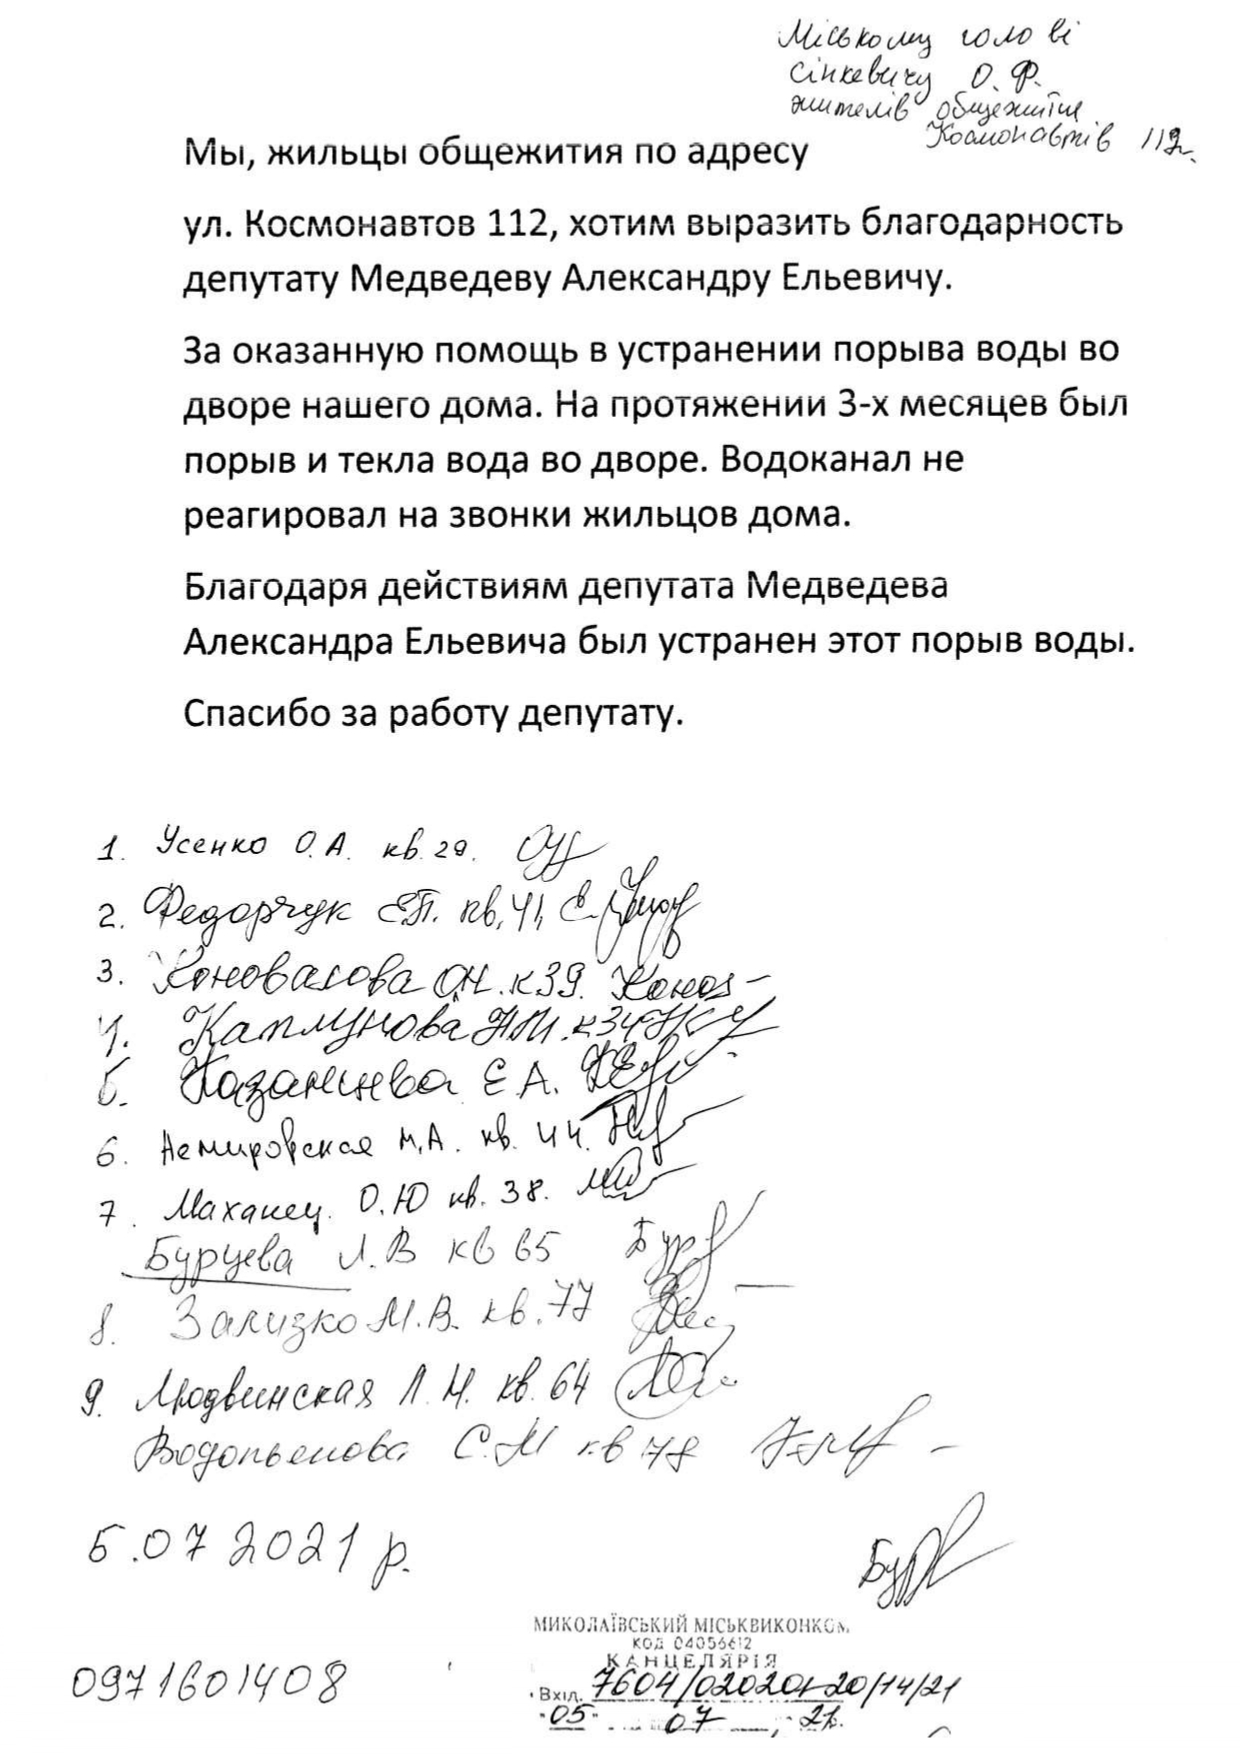 Міському голові
Сінкевичу О. Ф.
жителів общежитія
Космонавтів 112
Мы, жильцы общежития по адресу
ул. Космонавтов 112, хотим выразить благодарность
депутату Медведеву Александру Ельевичу.
За оказанную помощь в устранении порыва воды во
дворе нашего дома. На протяжении 3-х месяцев был
порыв и текла вода во дворе. Водоканал не
реагировал на звонки жильцов дома.
Благодаря действиям депутата Медведева
Александра Ельевича был устранен этот порыв воды.
Спасибо за работу депутату.
1. Усенко О.А. кв. 29.
2. Федорчук Е.П. кв. 41,
3. Коновалова О.Н. к 39.
4. Каплунова Н.И. к 34
5. Казанцева Е А.
6. Немировская М.А. кв. 44.
7. Маханец О.Ю кв. 38.
Бурцева Л.В кв 65 Бур
8. Зализко М.В. кв. 77
9. Людвинская Л.Н. кв. 64
Водопьенова С.М кв 78
5.07 2021 р.
Бур
0971601408
МИКОЛАЇВСЬКИЙ МІСЬКВИКОНКОМ
КОД 04056612
КАНЦЕЛЯРІЯ
Вхід. 7604/020201-20/14/21
"05" 07 21.